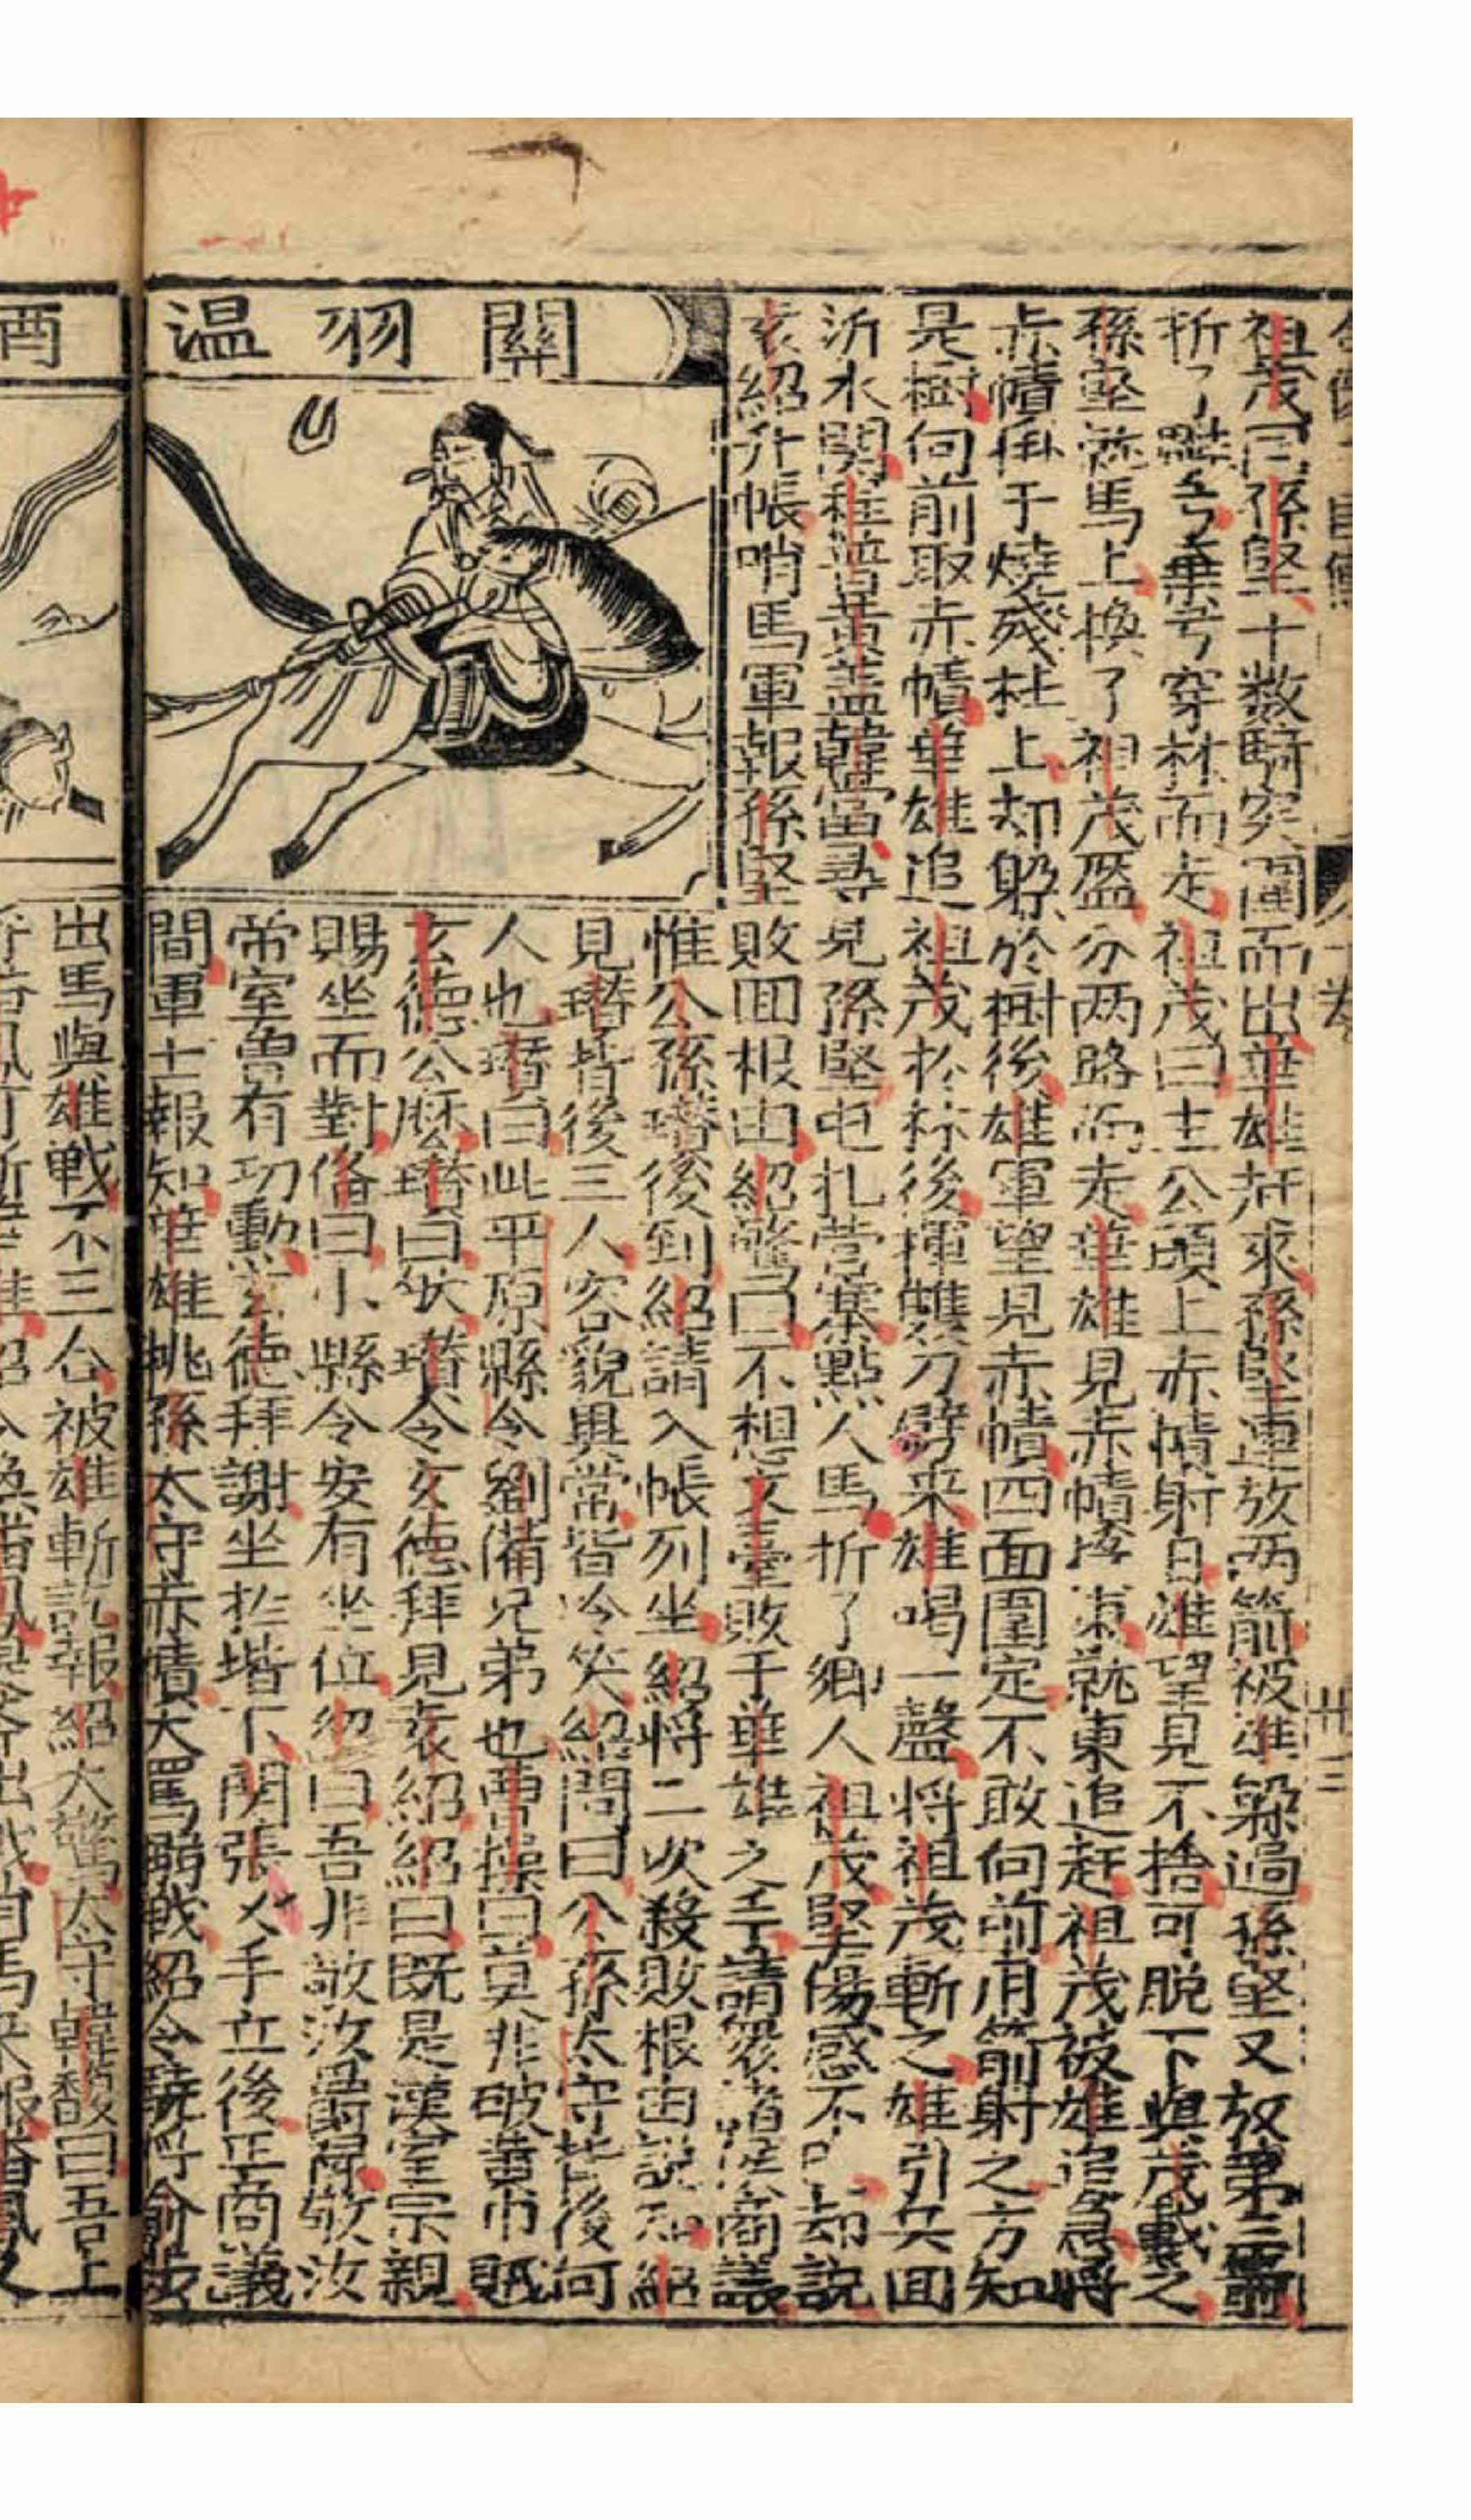 祖茂同孫堅十数騎突圍而出華雄赶來孫堅連放两箭被雄躲過孫堅又放第三箭
折了鵲弓棄弓穿林而走祖茂曰主公頭上赤幘射目雄望見不捨可脱下與茂戴之
孫堅就馬上換了祖茂盔分两路而走華雄見赤幘落東就東追赶祖茂被雄追急將
赤幘掛于燒殘柱上却躲於樹後雄軍望見赤幘四面圍定不敢向前用箭射之方知
是樹向前取赤幘華雄追祖茂於林後揮雙刀劈来雄喝一聲將祖茂斬之雄引兵回
沂水関程普黄盖韓當尋見孫堅屯扎營寨點人馬折了鄉人祖茂堅傷感不已却説
袁紹升帳哨馬軍報孫堅敗回根由紹驚曰不想文臺敗于華雄之手請衆諸侯商議
關羽温
惟公孫瓚後到紹請入帳列坐紹將二次殺敗根由説知紹
見瓚背後三人容貌異常皆冷笑紹問曰公孫太守背後何
人也瓚曰此平原縣令劉備兄弟也曹操曰莫非破黄巾賊
玄德公麽瓚曰然瓚令玄德拜見袁紹紹曰既是漢室宗親
賜坐而對備曰小縣令安有坐位紹曰吾非敬汝爵尋敬汝
帝室曾有功勳玄德拜謝坐於堦下関張叉手立後正商議
間軍士報知華雄挑孫太守赤幘大罵搦戰紹令驍將俞涉
出馬與雄戰不三合被雄斬訖報紹大驚太守韓馥曰吾上
酒